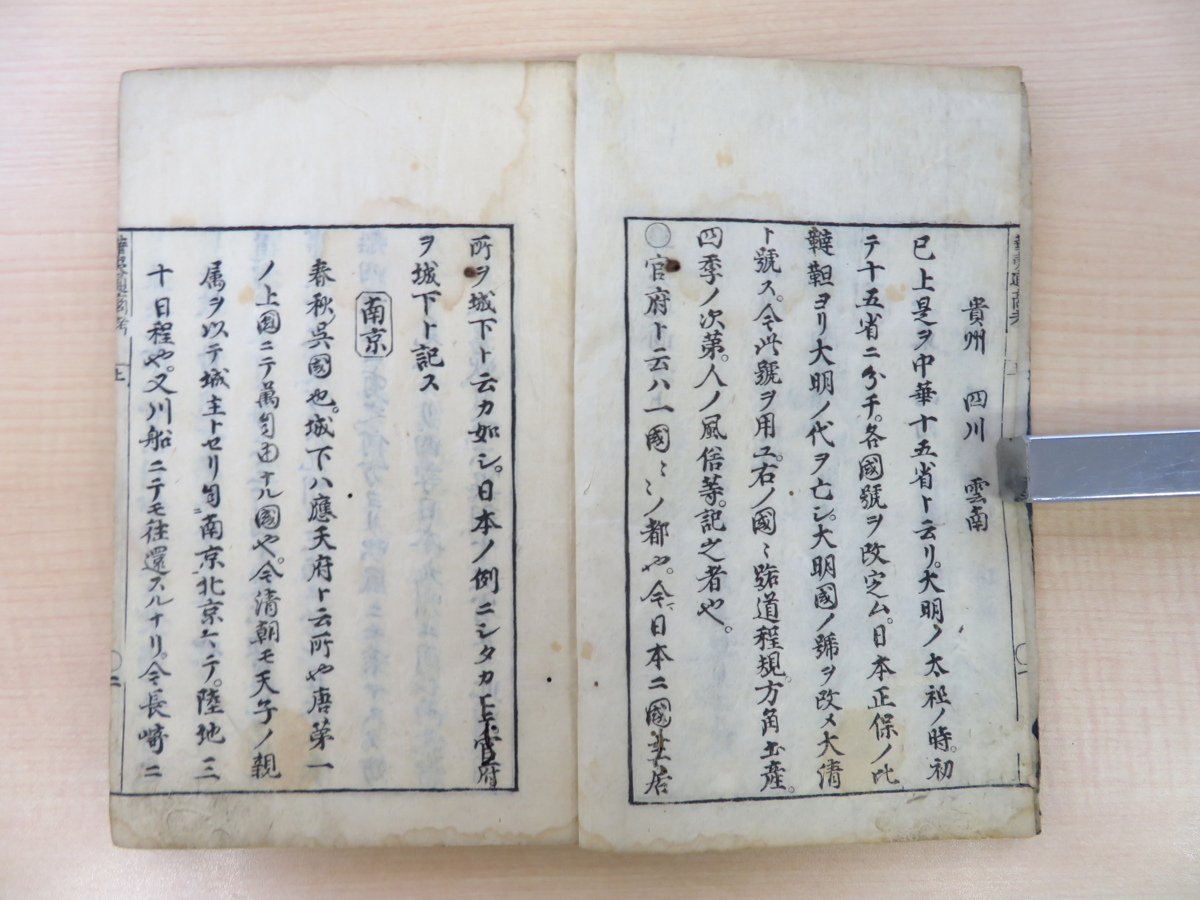 貴州 四川 雲南
已上是ヲ中華十五省ト云リ。大明ノ太祖ノ時。初
テ十五省ニ分チ。各國號ヲ改定ム。日本正保ノ比
韃靼ヨリ大明ノ代ヲ亡シ。大明國ノ號ヲ改メ大清
ト號ス。今此號ヲ用ユ。右ノ國〻路道程規。方角土産。
四季ノ次第。人ノ風俗等。記之者也。
○官府ト云ハ一國〻〻ノ都也。今日本ニ國主居
所ヲ城下ト云カ如シ。日本ノ例ニシタカヒ官府
ヲ城下ト記ス
南京
春秋呉國也。城下ハ應天府ト云所也唐第一
ノ上國ニテ萬自由ナル國也。今清朝モ天子ノ親
属ヲ以テ城主トセリ自南京北京ヘテ。陸地三
十日程也。又川船ニテモ往還スルナリ。今長崎ニ